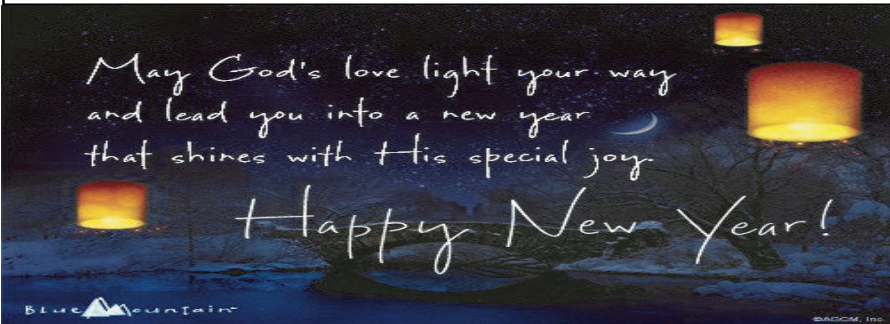 May God's love light your way
and lead you into a new year
that shines with His special joy.
Happy New Year!
Blue Mountain™
©AGCM, Inc.